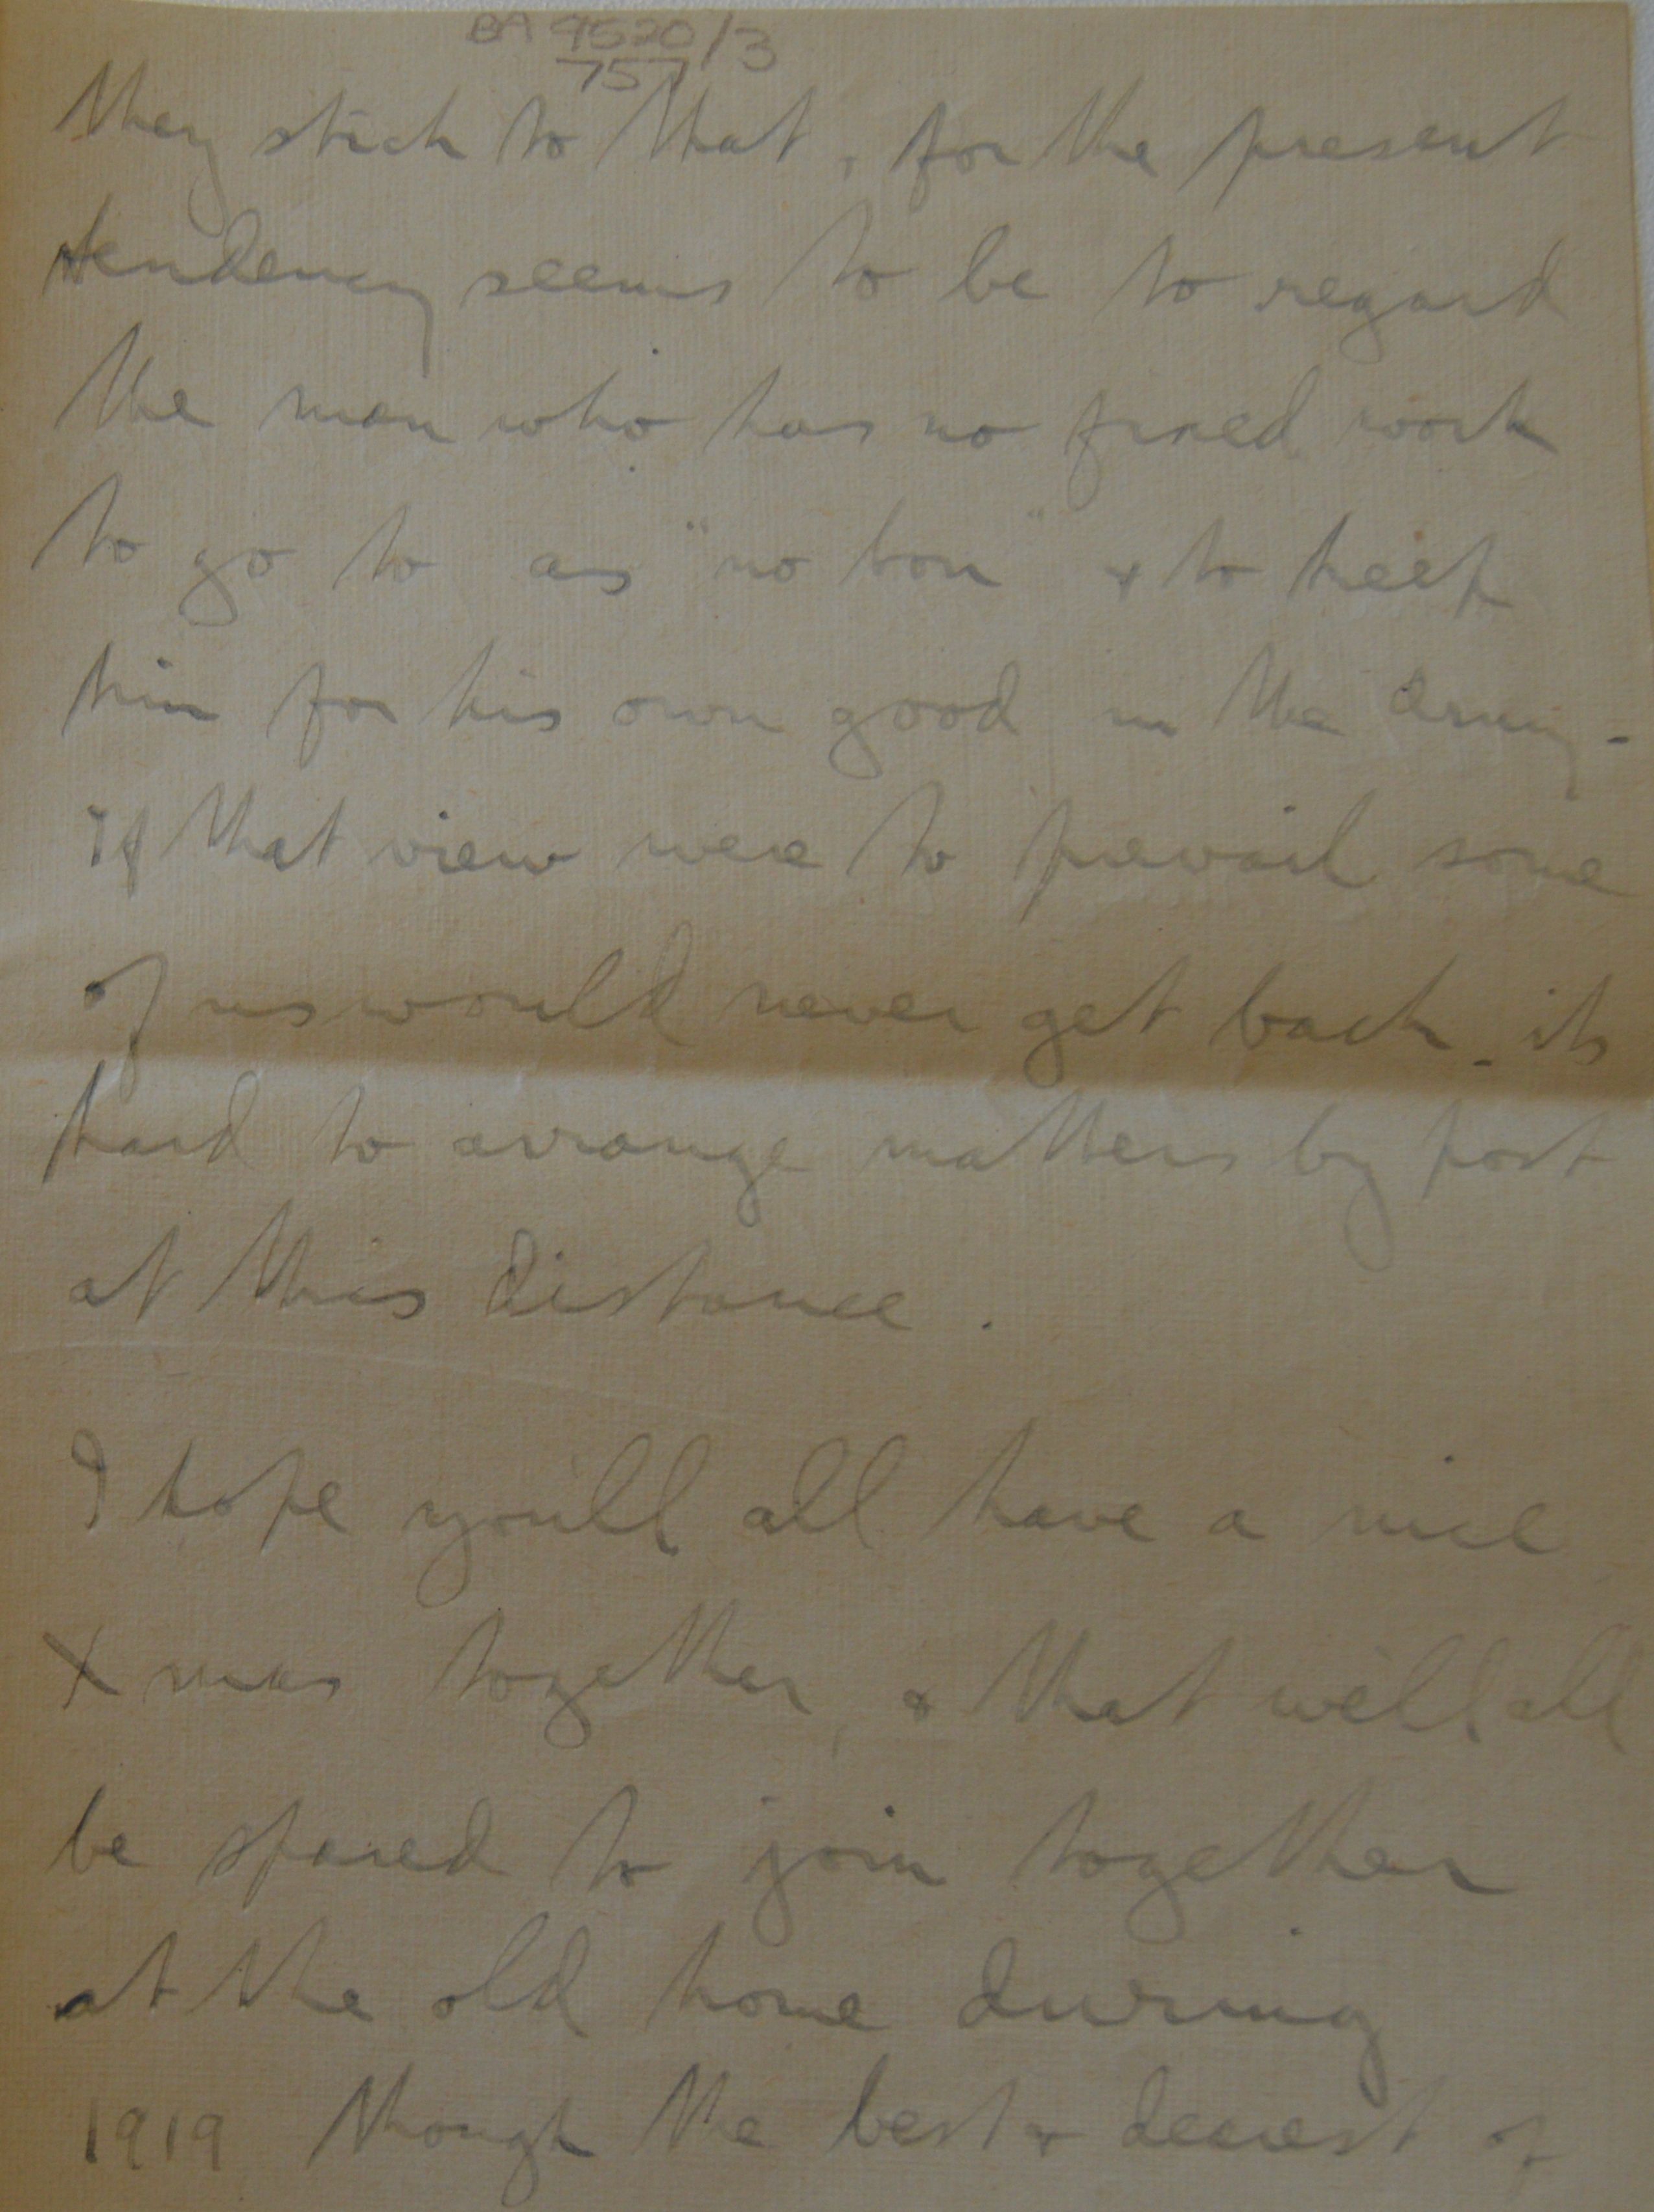 BA 9520/3
757
they stick to that, for the present
tendency seems to be to regard
the man who has no fixed work
to go to as "no bon" & to keep
him for his own good in the army -
If that view were to prevail some
of us would never get back - its
hard to arrange matters by post
at this distance.
I hope you'll all have a nice
Xmas together, & that we'll all
be spared to join together
at the old home during
1919 though the best & dearest of